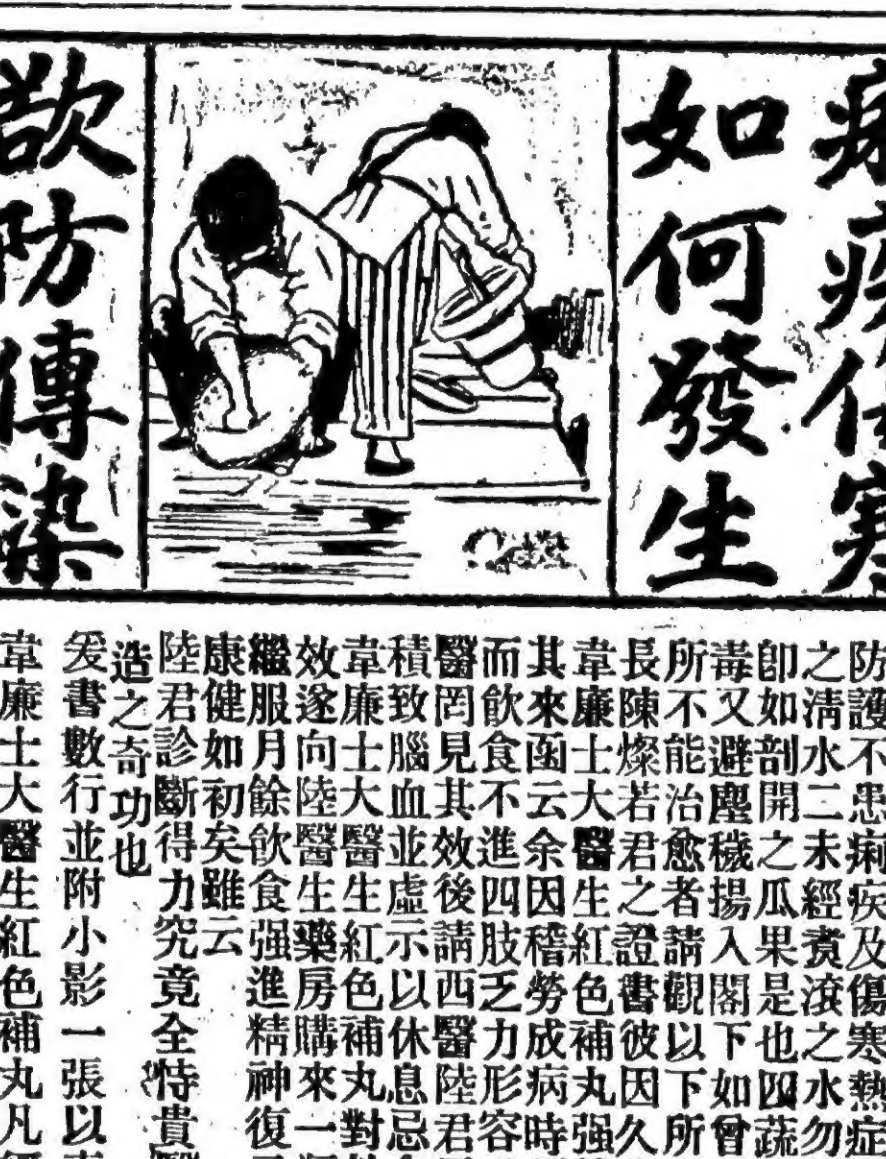 痢疾傷寒
如何發生
欲防傳染
防護不患痢疾及傷寒熱症
之淸水二未經煑滾之水勿
卽如剖開之瓜果是也四蔬
毒又避塵穢揚入閣下如曾
所不能治愈者請觀以下所
長陳燦若君之證書彼因久
韋廉士大醫生紅色補丸强
其來函云余因稽勞成病時
而飲食不進四肢乏力形容
醫罔見其效後請西醫陸君
積致腦血並虛示以休息忌
韋廉士大醫生紅色補丸對
效遂向陸醫生藥房購來一
繼服月餘飲食强進精神復
康健如初矣雖云
陸君診斷得力究竟全恃貴
造之奇功也
爰書數行並附小影一張以
韋廉士大醫生紅色補丸凡